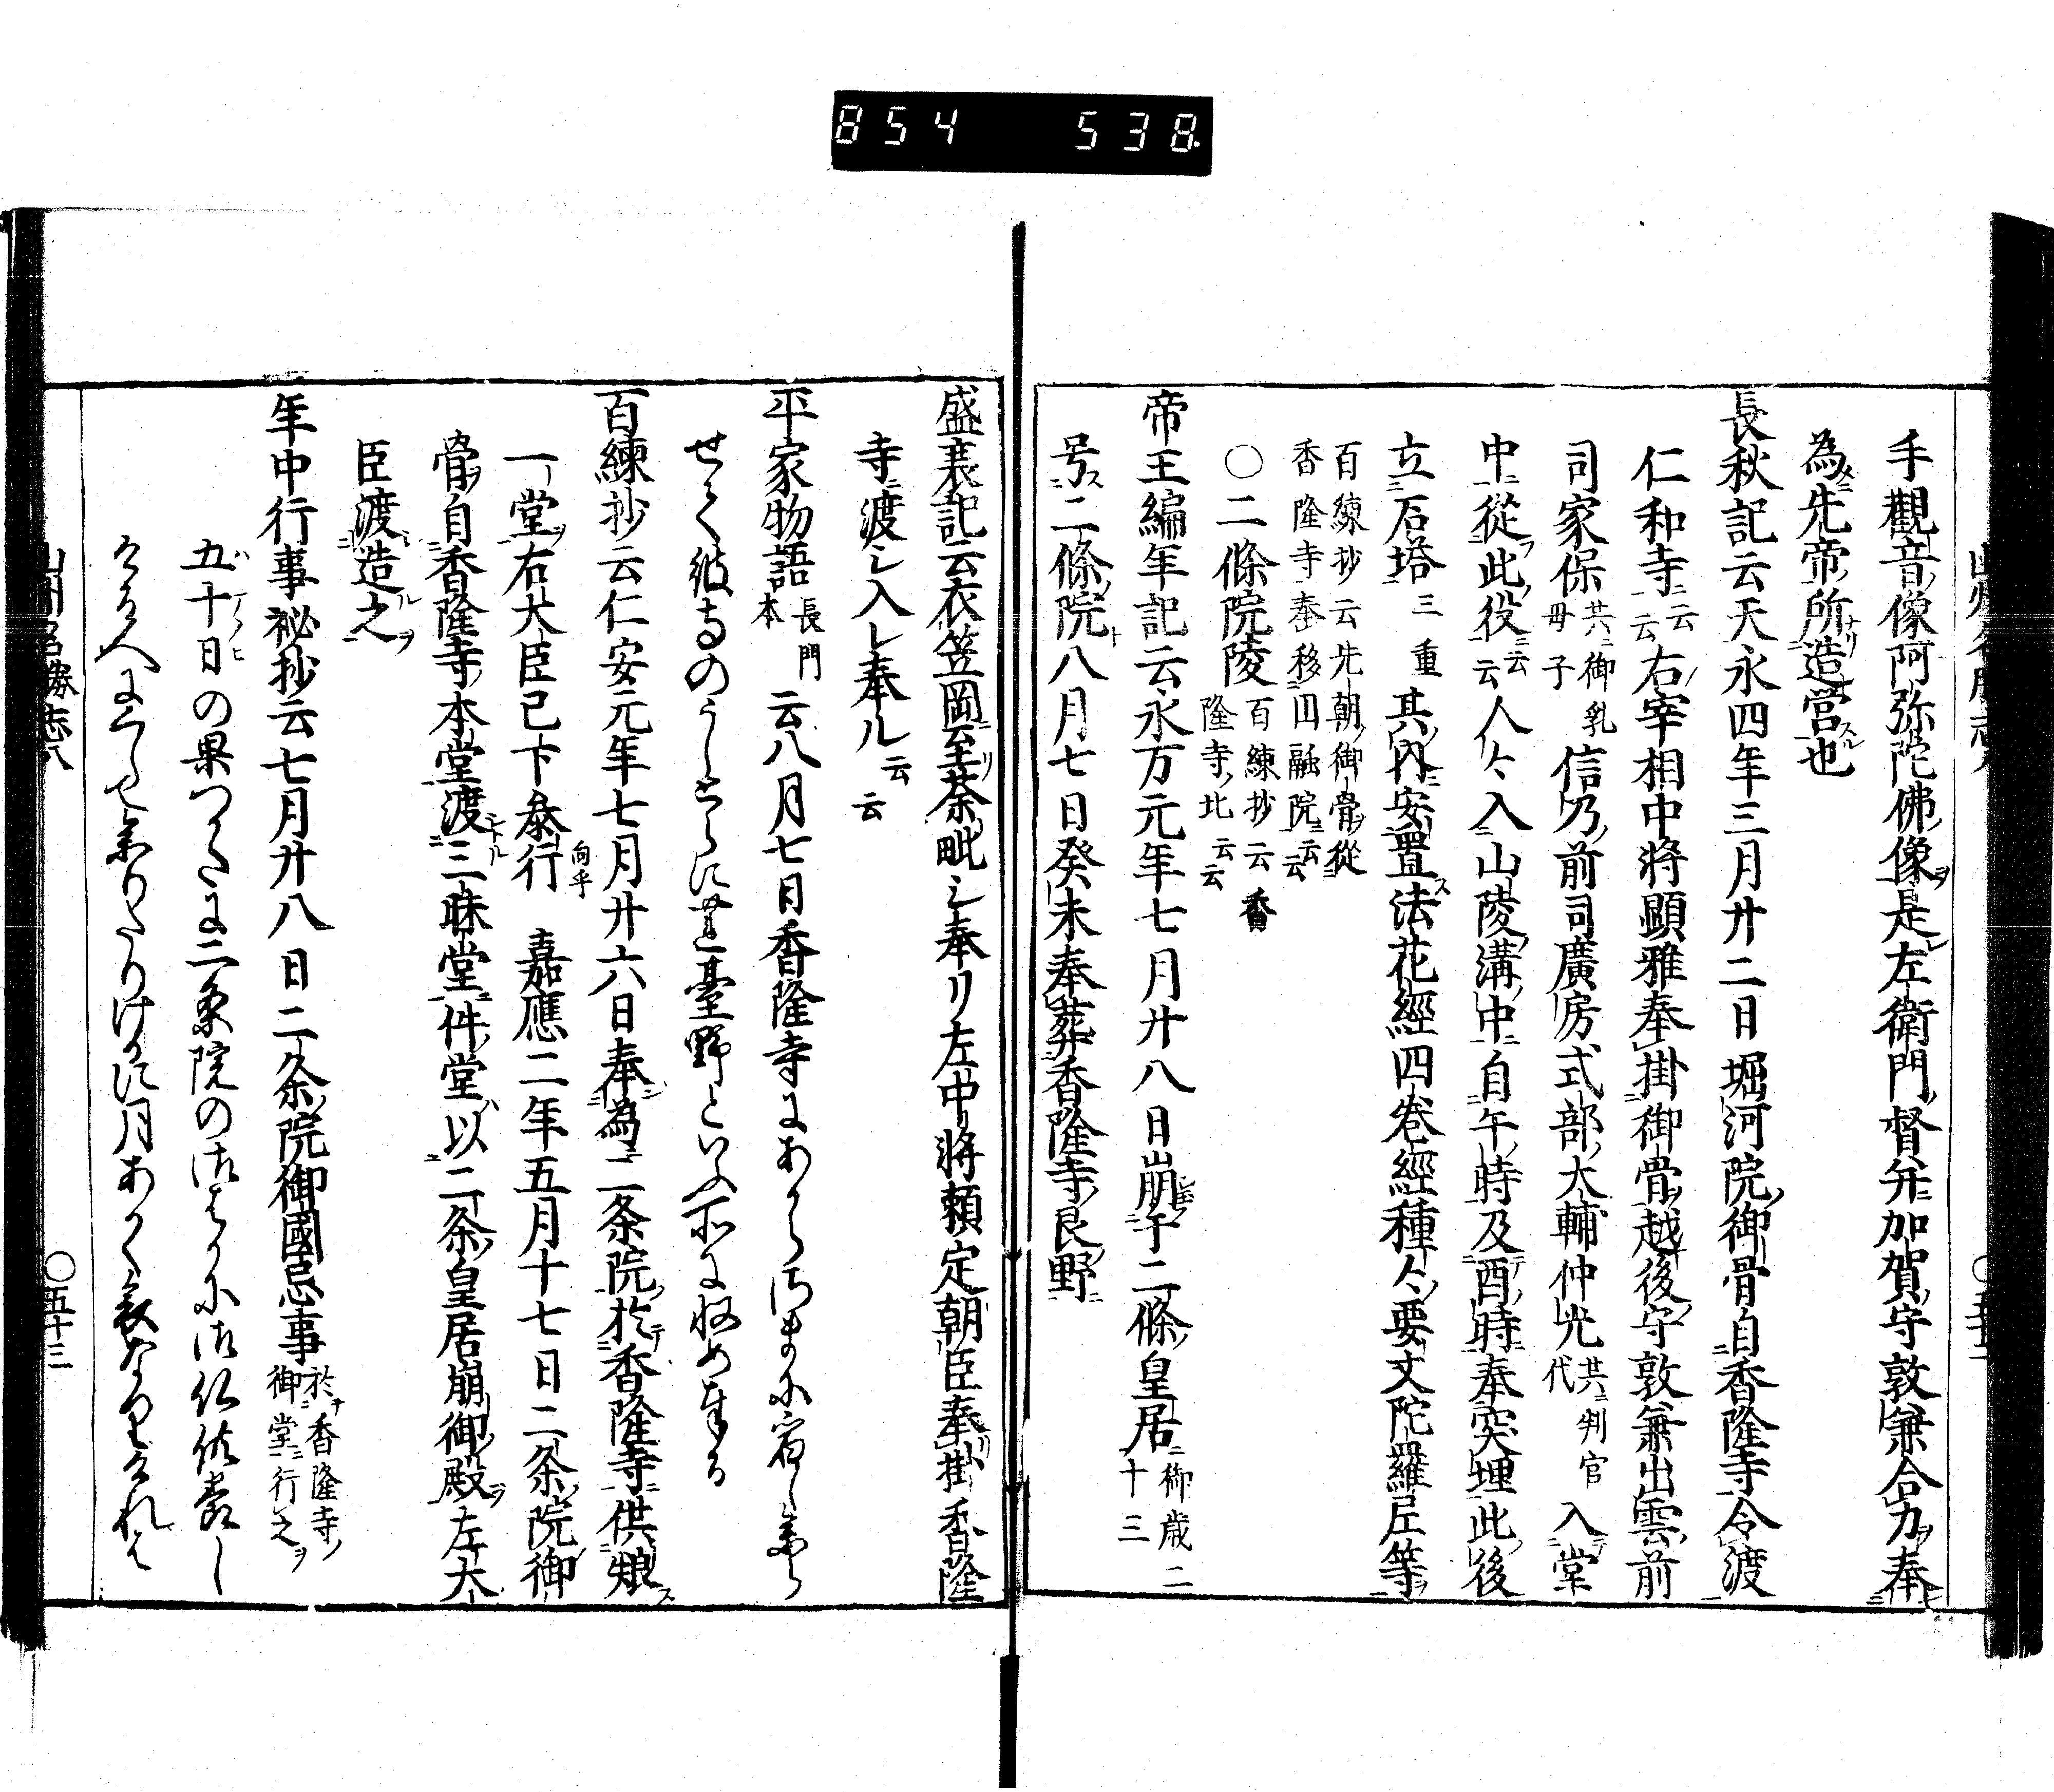 854 538
手觀音像阿弥陀佛像是左衛門督并加賀守敦兼合力奉
為先帝所造営也
長秋記云天永四年三月廿二日堀河院御骨自香隆寺令渡
仁和寺云云右宰相中将顕雅奉掛御骨越後守敦兼出雲前
司家保共御乳母子信乃前司廣房式部大輔仲光共判官代入堂
中従此役云云人々入山陵溝中自午時及酉時奉突埋此後
立石塔三重其内安置法花經四巻經種々要文陀羅尼等
百練抄云先朝御骨從
香隆寺奉移円融院云云
〇二條院陵百練抄云香隆寺北云云
帝王編年記云永万元年七月廿八日崩于二條皇居御歳二十三
号二條院八月七日癸未奉葬香隆寺艮野
盛衰記云衣笠岡至荼毗シ奉リ左中将頼定朝臣奉掛香隆
寺渡シ入レ奉ル云云
平家物語長門本云八月七日香隆寺にあからさまに宿し奉ら
せて彼寺のうしとらに蓮臺野といふ所に収め奉る
百練抄云仁安元年七月廿六日奉為二条院於香隆寺供娘
一堂右大臣已下参行向乎嘉應二年五月十七日二条院御
骨自香隆寺本堂渡三昧堂件堂以二条皇居崩御殿左大
臣渡造之
年中行事祕抄云七月廿八日二条院御國忌事於香隆寺御堂行之
五十日の果つかたに二条院の御はかに御仏供養し
ける人にくして参りたりけるに月あかく哀なりけれは
山州名勝志八
〇五十三